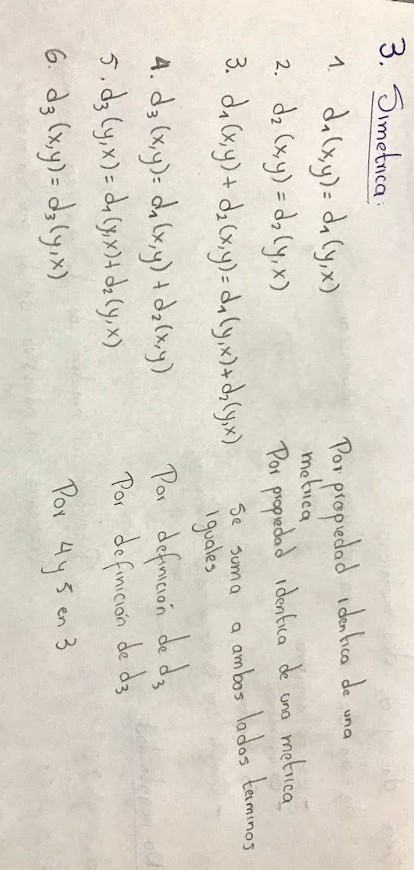 3. Simetrica:
1. d₁(x,y) = d₁(y,x) Por propiedad identica de una
metrica
2. d₂(x,y) = d₂(y,x) Por propiedad identica de una metrica
3. d₁(x,y) + d₂(x,y) = d₁(y,x) + d₂(y,x) Se suma a ambos lados terminos
iguales
4. d₃(x,y) = d₁(x,y) + d₂(x,y) Por definición de d₃
5. d₃(y,x) = d₁(y,x) + d₂(y,x) Por definición de d₃
6. d₃(x,y) = d₃(y,x) Por 4 y 5 en 3